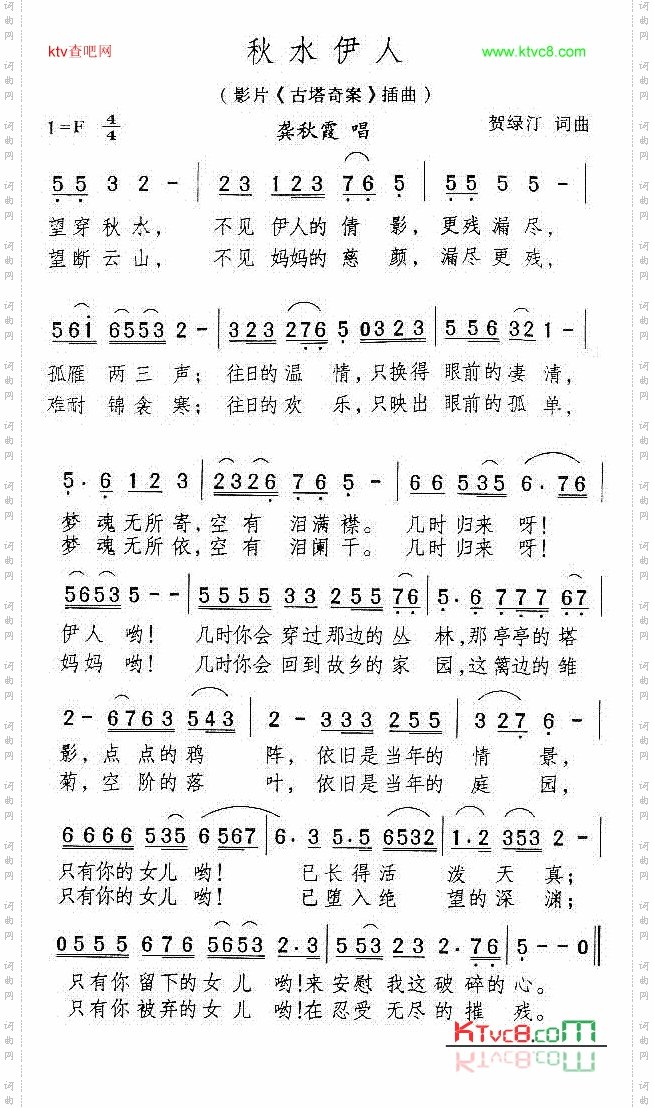 ktv查吧网
秋水伊人
www.ktvc8.com
(影片《古塔奇案》插曲)
1=F 4/4
龚秋霞 唱
贺绿汀 词曲
5 5 3 2 - | 2 3 1 2 3 7 6 5 | 5 5 5 5 - |
望穿秋水, 不见伊人的倩影,更残漏尽,
望断云山, 不见妈妈的慈颜,漏尽更残,
5 6 i 6 5 5 3 2 - | 3 2 3 2 7 6 5 0 3 2 3 | 5 5 6 3 2 1 - |
孤雁两三声;往日的温情,只换得眼前的凄清,
难耐锦衾寒;往日的欢乐,只映出眼前的孤单,
5 . 6 1 2 3 | 2 3 2 6 7 6 5 - | 6 6 5 3 5 6 . 7 6 |
梦魂无所寄,空有泪满襟。几时归来呀!
梦魂无所依,空有泪阑干。几时归来呀!
5 6 5 3 5 - - | 5 5 5 5 3 3 2 5 5 7 6 | 5 . 6 7 7 7 6 7 |
伊人哟! 几时你会穿过那边的丛林,那亭亭的塔
妈妈哟! 几时你会回到故乡的家园,这篱边的雏
2 - 6 7 6 3 5 4 3 | 2 - 3 3 3 2 5 5 | 3 2 7 6 - |
影,点点的鸦阵,依旧是当年的情景,
菊,空阶的落叶,依旧是当年的庭园,
6 6 6 6 5 3 5 6 5 6 7 | 6 . 3 5 . 5 6 5 3 2 | 1 . 2 3 5 3 2 - |
只有你的女儿哟! 已长得活泼天真;
只有你的女儿哟! 已堕入绝望的深渊;
0 5 5 5 6 7 6 5 6 5 3 2 . 3 | 5 5 3 2 3 2 . 7 6 | 5 - - 0 ‖
只有你留下的女儿哟!来安慰我这破碎的心。
只有你被弃的女儿哟!在忍受无尽的摧残。
KTvc8.com
词曲网